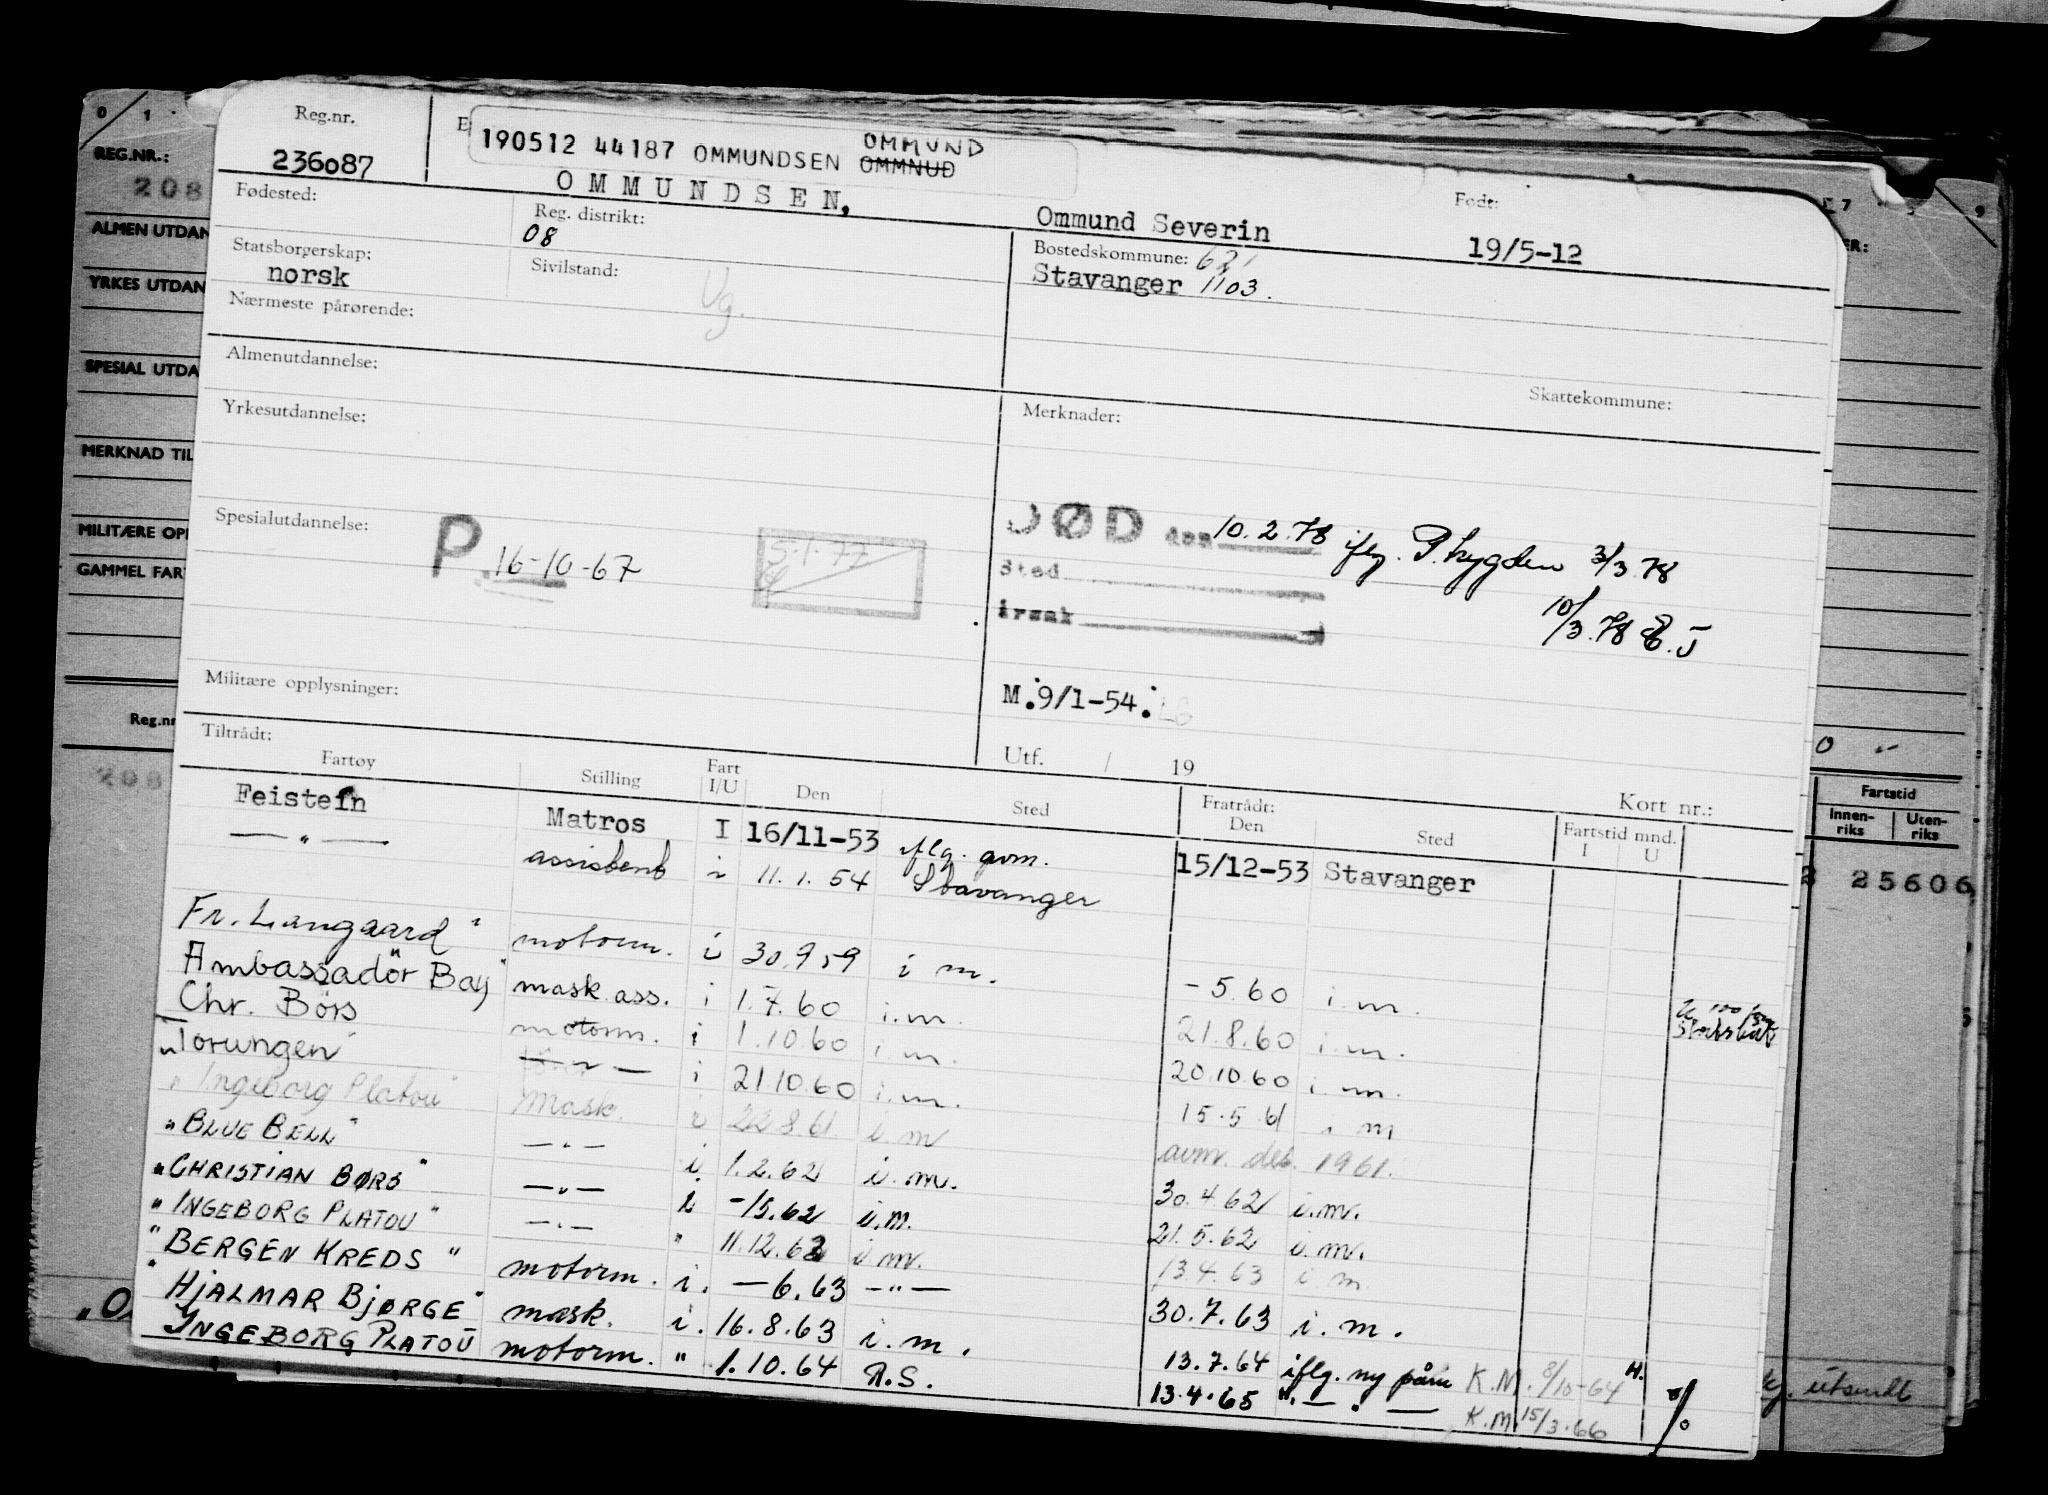 Reg.nr.
236087
190512 44187 OMMUNDSEN OMMNUD OMMUND
OMMUNDSEN, Ommund Severin
Født:
19/5-12
Fødested:
Reg. distrikt:
08
Bostedskommune: 621
Stavanger 1103.
Statsborgerskap:
norsk
Sivilstand:
Ug.
Nærmeste pårørende:
Almenutdannelse:
Skattekommune:
Yrkesutdannelse:
Merknader:
Spesialutdannelse:
P. 16-10-67
5.1.77
DØD den 10.2.78 iflg. P. trygden 3/3.78
Sted
årsak
10/3.78
Militære opplysninger:
M.9/1-54.
Utf. / 19
Kort nr.:
Tiltrådt:
Fartøy Stilling Fart I/U Den Sted Fratrådt: Den Sted Fartstid mnd. I U
Feistein Matros I 16/11-53 iflg. avm. 15/12-53 Stavanger
— " — assistent i 11.1.54 Stavanger
Fr. Langaard" motorm. i 30.9.59 i m. -5.60 i.m.
Ambassadör Bay" mask.ass. i 1.7.60 i.m. 21.8.60 i.m.
Chr. Börs motorm. i 1.10.60 i.m. 20.10.60 i.m.
"Torungen" — " — i 21.10.60 i.m. 15.5.61 i m
"Ingeborg Platou" mask. i 22.8.61 i.m avm. des. 1961.
"BLUE BELL" — " — i 1.2.62 i.m. 30.4.62 i.m.
"CHRISTIAN BØRS" — " — i -15.62 i.m. 21.5.62 i.m.
"INGEBORG PLATOU" — " — " 11.12.62 i m. 13.4.63 i m.
"BERGEN KREDS" motorm. i. — 6.63 — " — 30.7.63 i.m.
"HJALMAR BJØRGE" mask. i. 16.8.63 i.m. 13.7.64 iflg. ny påm K.M. 8/10-64 H.
INGEBORG PLATOU motorm. " 1.10.64 R.S. 13.4.65 " — " — K.M. 15/3.66
0 1
REG.NR.:
208
ALMEN UTDAN
YRKES UTDAN
SPESIAL UTDA
MERKNAD TIL
MILITÆRE OP
GAMMEL FAR
Reg.nr
208
Fartstid
Innen-riks Uten-riks
25606
utsendt